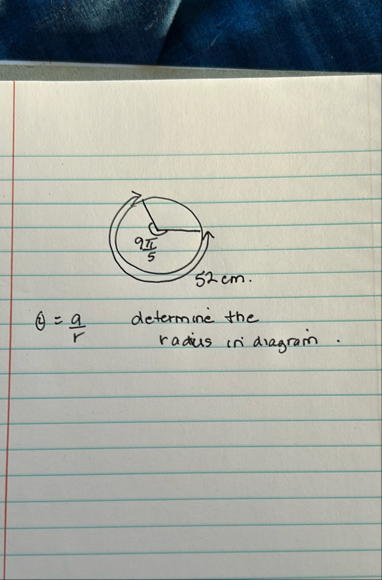 9π/5
52 cm.
θ = a/r determine the
radius in diagram.